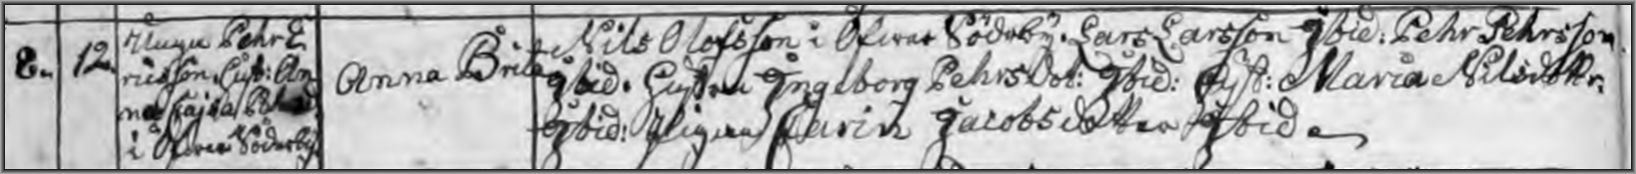 8. 12. Unga Pehr E
ricsson, Hust: An
na Cajsa Pehrsd
i Öfver Söderby.
Anna Brita
Nils Olofsson i Öfver Söderby. Lars Larsson Ibid: Pehr Pehrsson
Ibid. Hustru Ingeborg Pehrs Dot: Ibid: Hust: Maria Nilsdotter
Ibid: Pigan Carin Jacobsdotter Ibid.